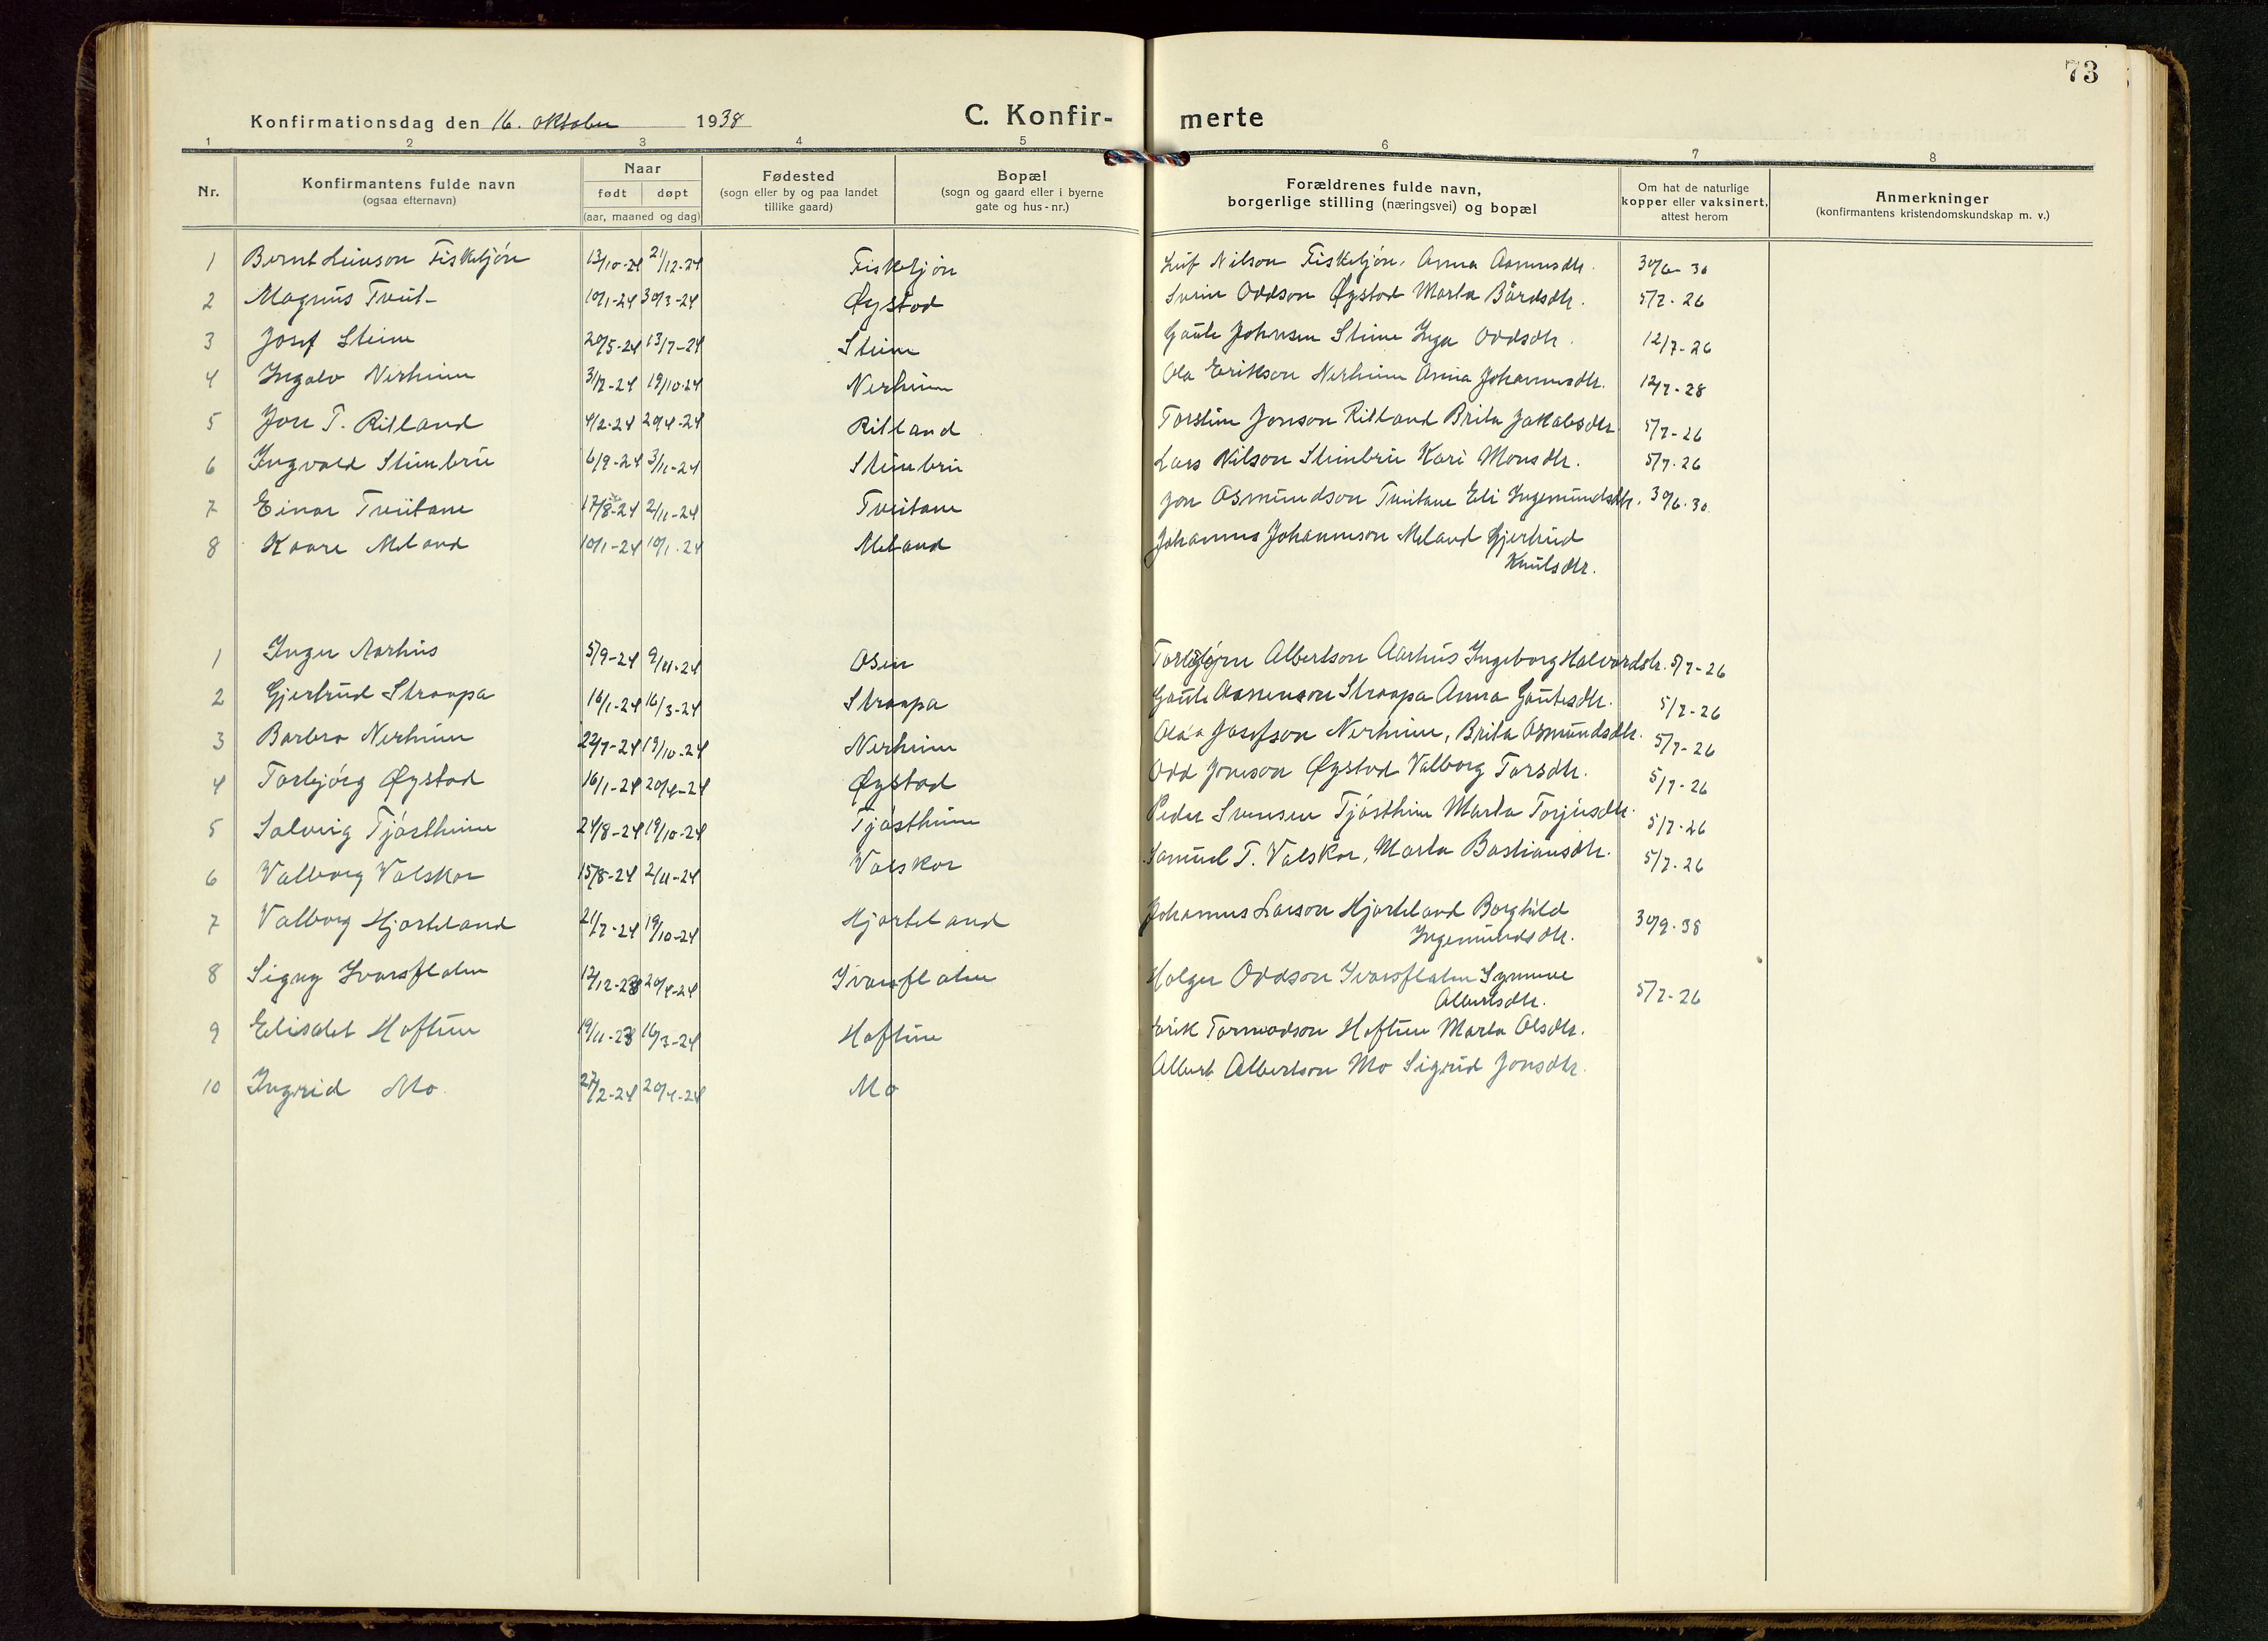 73
Konfirmationsdag den 16. oktober 1938
C. Konfir- merte
1 2 3 4 5 6 7 8
Nr.
Konfirmantens fulde navn
(ogsaa efternavn)
Naar
født døpt
(aar, maaned og dag)
Fødested
(sogn eller by og paa landet
tillike gaard)
Bopæl
(sogn og gaard eller i byerne
gate og hus-nr.)
Forældrenes fulde navn,
borgerlige stilling (næringsvei) og bopæl
Om hat de naturlige
kopper eller vaksinert,
attest herom
Anmerkninger
(konfirmantens kristendomskundskap m. v.)
1 Bernt Leivson Fisketjón 13/10-24 21/12-24 Fisketjón Leif Nilson Fisketjón. Anna Aamundsdtr. 30/6-30
2 Magnus Tveit 10/1-24 30/3-24 Øystad Svein Oddson Øystad Marta Bårdsdtr. 5/7-26
3 Josef Steine 20/5-24 13/7-24 Steine Gaute Johnsen Steine Inga Oddsdtr. 12/7-26
4 Ingalv Nerheim 31/7-24 19/10-24 Nerheim Ola Erikson Nerheim Anna Johannesdtr. 12/7-28
5 Jon T. Ritland 4/2-24 20/4-24 Ritland Torstein Jonson Ritland Brita Jakobsdtr. 5/7-26
6 Ingvald Steinbru 6/9-24 3/11-24 Steinbru Lars Nilson Steinbru Kari Monsdtr. 5/7-26
7 Einar Tveitane 17/8-24 2/11-24 Tveitane Jon Osmundson Tveitane Eli Ingemundsdtr. 30/6-30
8 Kaare Meland 10/1-24 10/1-24 Meland Johannes Johanneson Meland Gjertrud
Knutsdtr.
1 Inger Aarhus 5/9-24 9/11-24 Osen Torbjørn Albertson Aarhus Ingeborg Halvardsdtr. 5/7-26
2 Gjertrud Straapa 16/1-24 16/3-24 Straapa Gaute Aasmunson Straapa Anna Gautesdtr. 5/7-26
3 Barbro Nerheim 22/7-24 19/10-24 Nerheim Ola Josefson Nerheim, Brita Osmundsdtr. 5/7-26
4 Torbjórg Øystad 16/1-24 20/4-24 Øystad Odd Jonson Øystad Valborg Torsdtr. 5/7-26
5 Solveig Tjóstheim 24/8-24 19/10-24 Tjóstheim Peder Svensen Tjóstheim Marta Torjusdtr. 5/7-26
6 Valborg Valskor 15/8-24 2/11-24 Valskor Samuel T. Valskor, Marta Bastiansdtr. 5/7-26
7 Valborg Hjorteland 21/7-24 19/10-24 Hjorteland Johannes Larson Hjorteland Borghild
Ingemundsdtr. 30/9-38
8 Signy Ivarsflaten 12/12-23 20/4-24 Ivarsflaten Holger Oddson Ivarsflaten Synneve
Albertsdtr. 5/7-26
9 Elisabet Hoftun 19/11-23 16/3-24 Hoftun Eirik Tormodson Hoftun Marta Olsdtr.
10 Ingrid Mo 27/2-24 20/4-24 Mo Albert Albertson Mo Sigrid Jonsdtr.